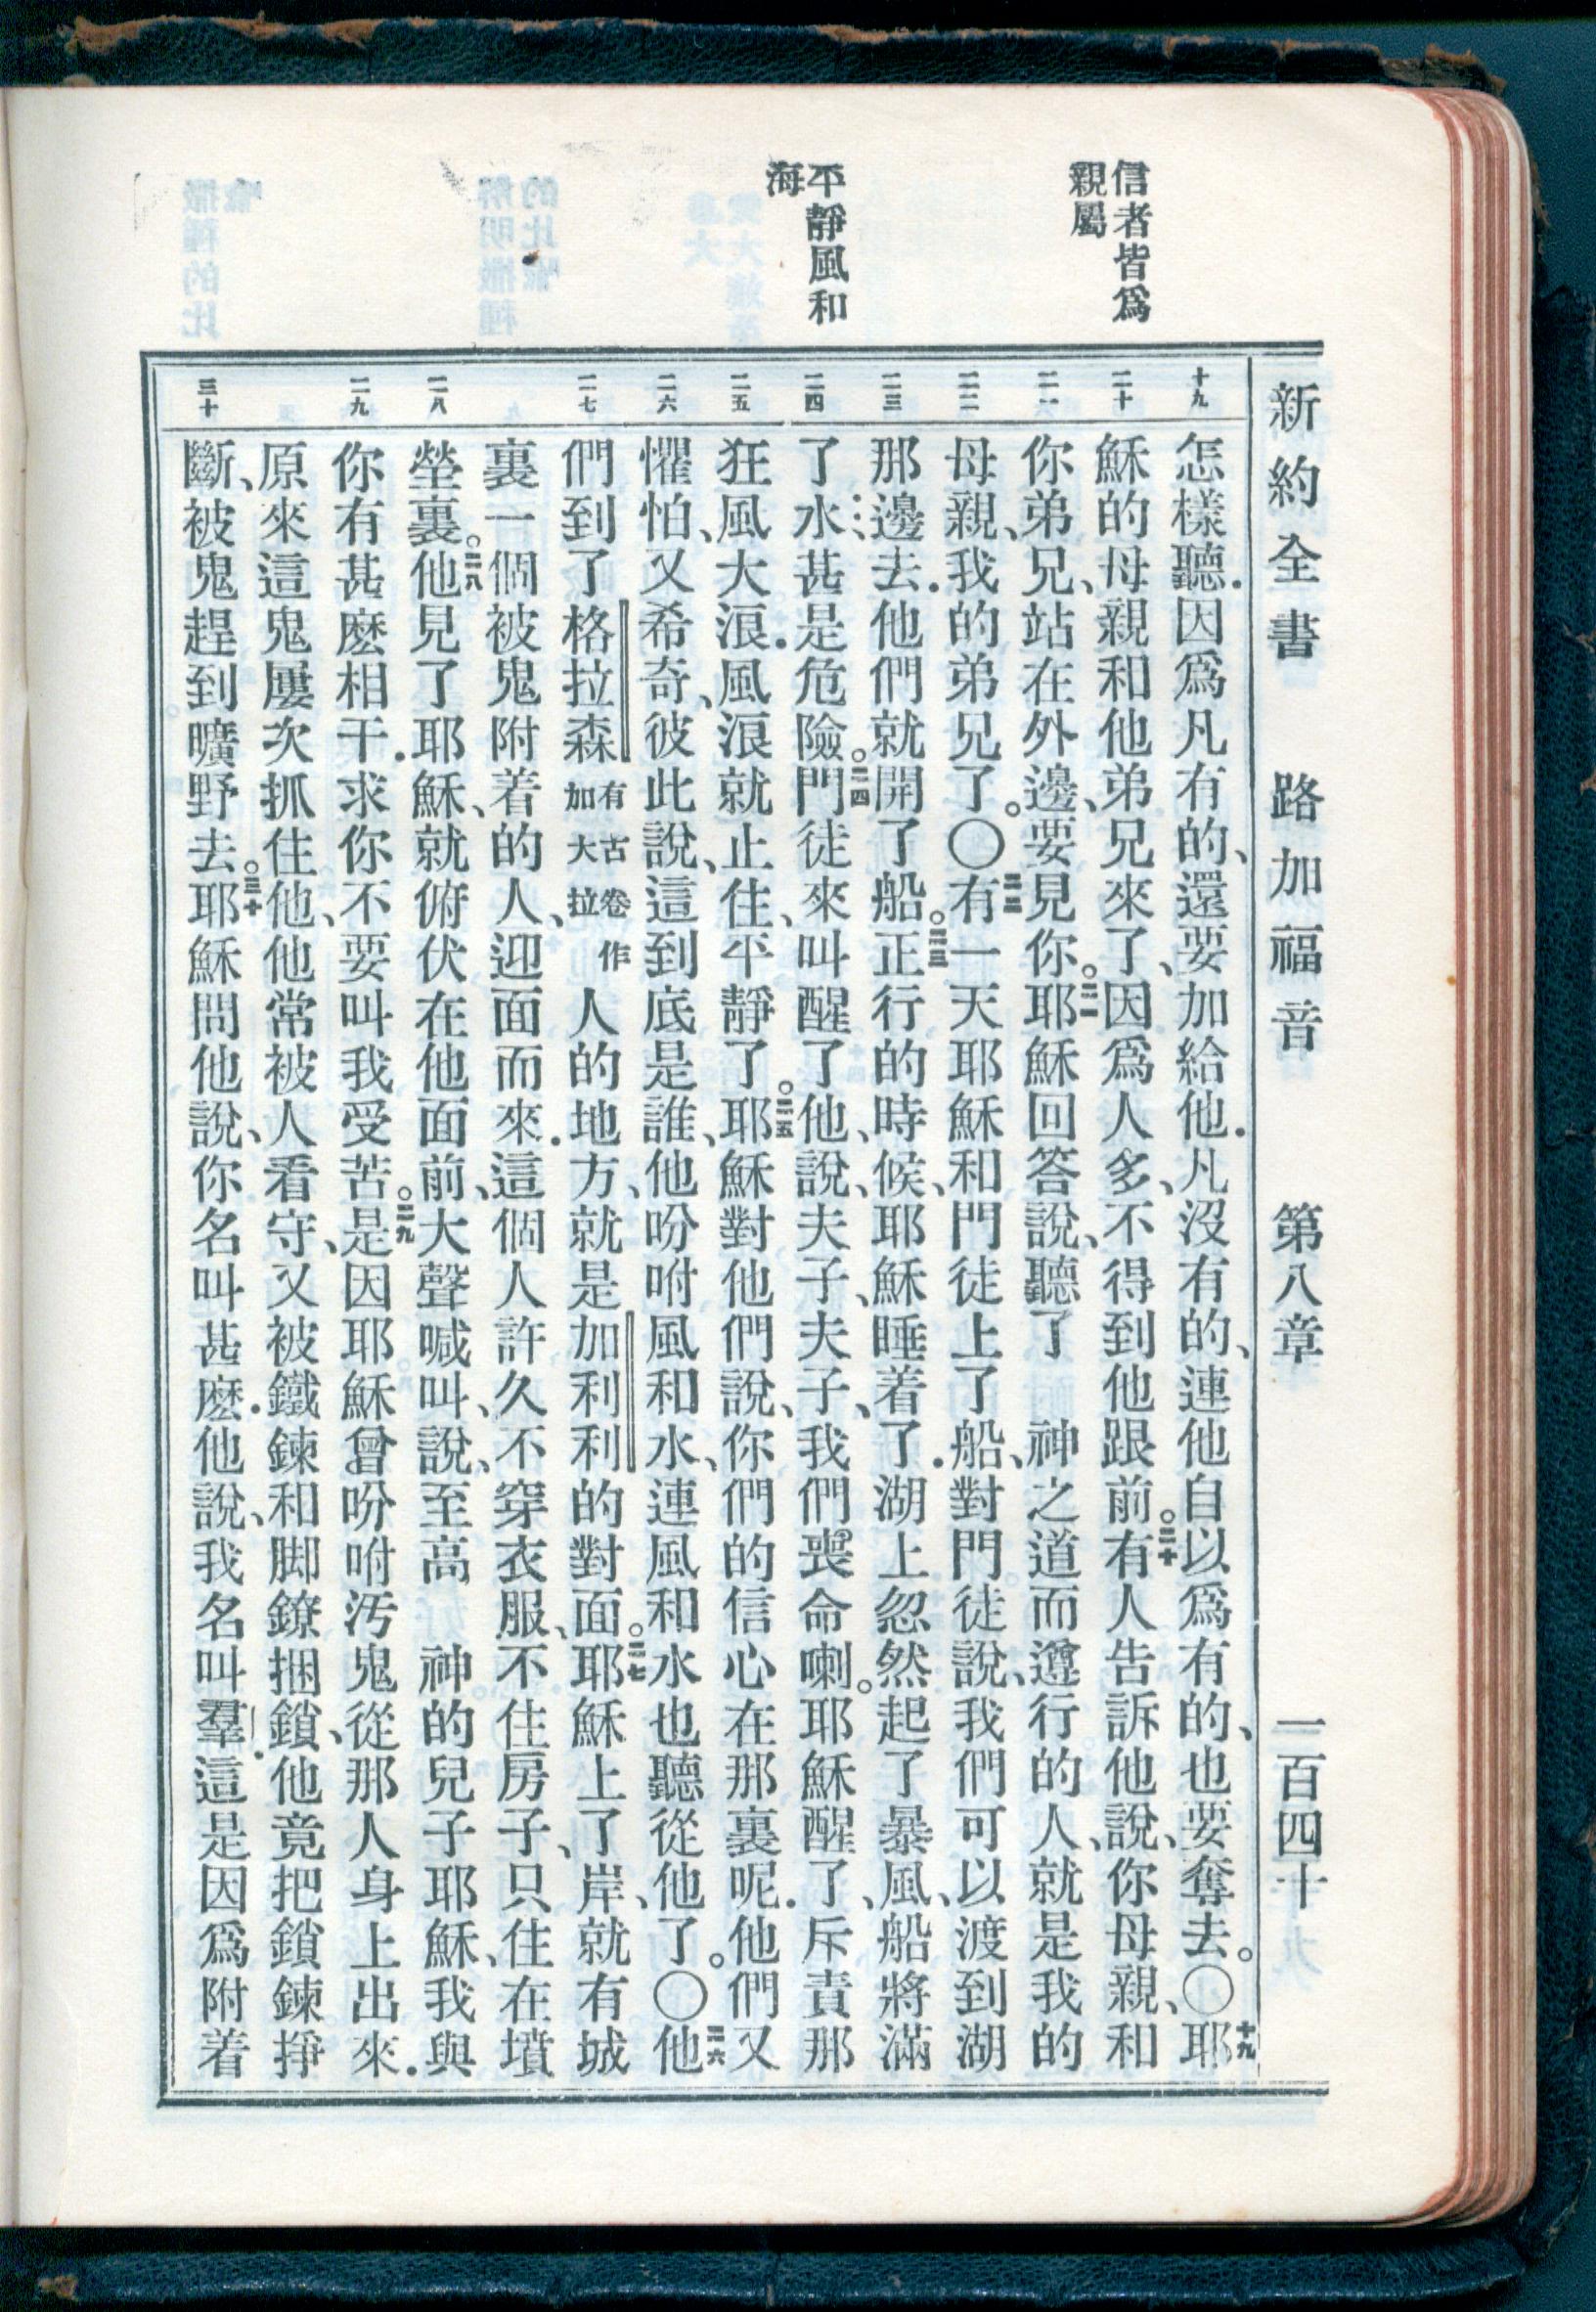 新約全書 路加福音 第八章 一百四十
信者皆爲
親屬
平靜風和
海
十九 二十 二一 二二 二三 二四 二五 二六 二七 二八 二九 三十
怎樣聽．因爲凡有的、還要加給他．凡沒有的、連他自以爲有的、也要奪去。〇十九耶
穌的母親和他弟兄來了、因爲人多、不得到他跟前。二十有人告訴他說、你母親、和
你弟兄、站在外邊、要見你。二一耶穌回答說、聽了 神之道而遵行的人、就是我的
母親、我的弟兄了。〇二二有一天耶穌和門徒上了船、對門徒說、我們可以渡到湖
那邊去．他們就開了船。二三正行的時候、耶穌睡着了．湖上忽然起了暴風、船將滿
了水、甚是危險。二四門徒來叫醒了他、說、夫子、夫子、我們喪命喇。耶穌醒了、斥責那
狂風大浪．風浪就止住、平靜了。二五耶穌對他們說、你們的信心在那裏呢．他們又
懼怕、又希奇、彼此說、這到底是誰、他吩咐風和水、連風和水也聽從他了。〇二六他
們到了格拉森有古卷作加大拉人的地方、就是加利利的對面。二七耶穌上了岸、就有城
裏一個被鬼附着的人、迎面而來．這個人許久不穿衣服、不住房子、只住在墳
塋裏。二八他見了耶穌、就俯伏在他面前、大聲喊叫、說、至高 神的兒子耶穌、我與
你有甚麽相干．求你不要叫我受苦。二九是因耶穌曾吩咐汚鬼從那人身上出來．
原來這鬼屢次抓住他、他常被人看守、又被鐵鍊和脚鐐捆鎖、他竟把鎖鍊掙
斷、被鬼趕到曠野去。三十耶穌問他說、你名叫甚麽．他說、我名叫羣．這是因爲附着